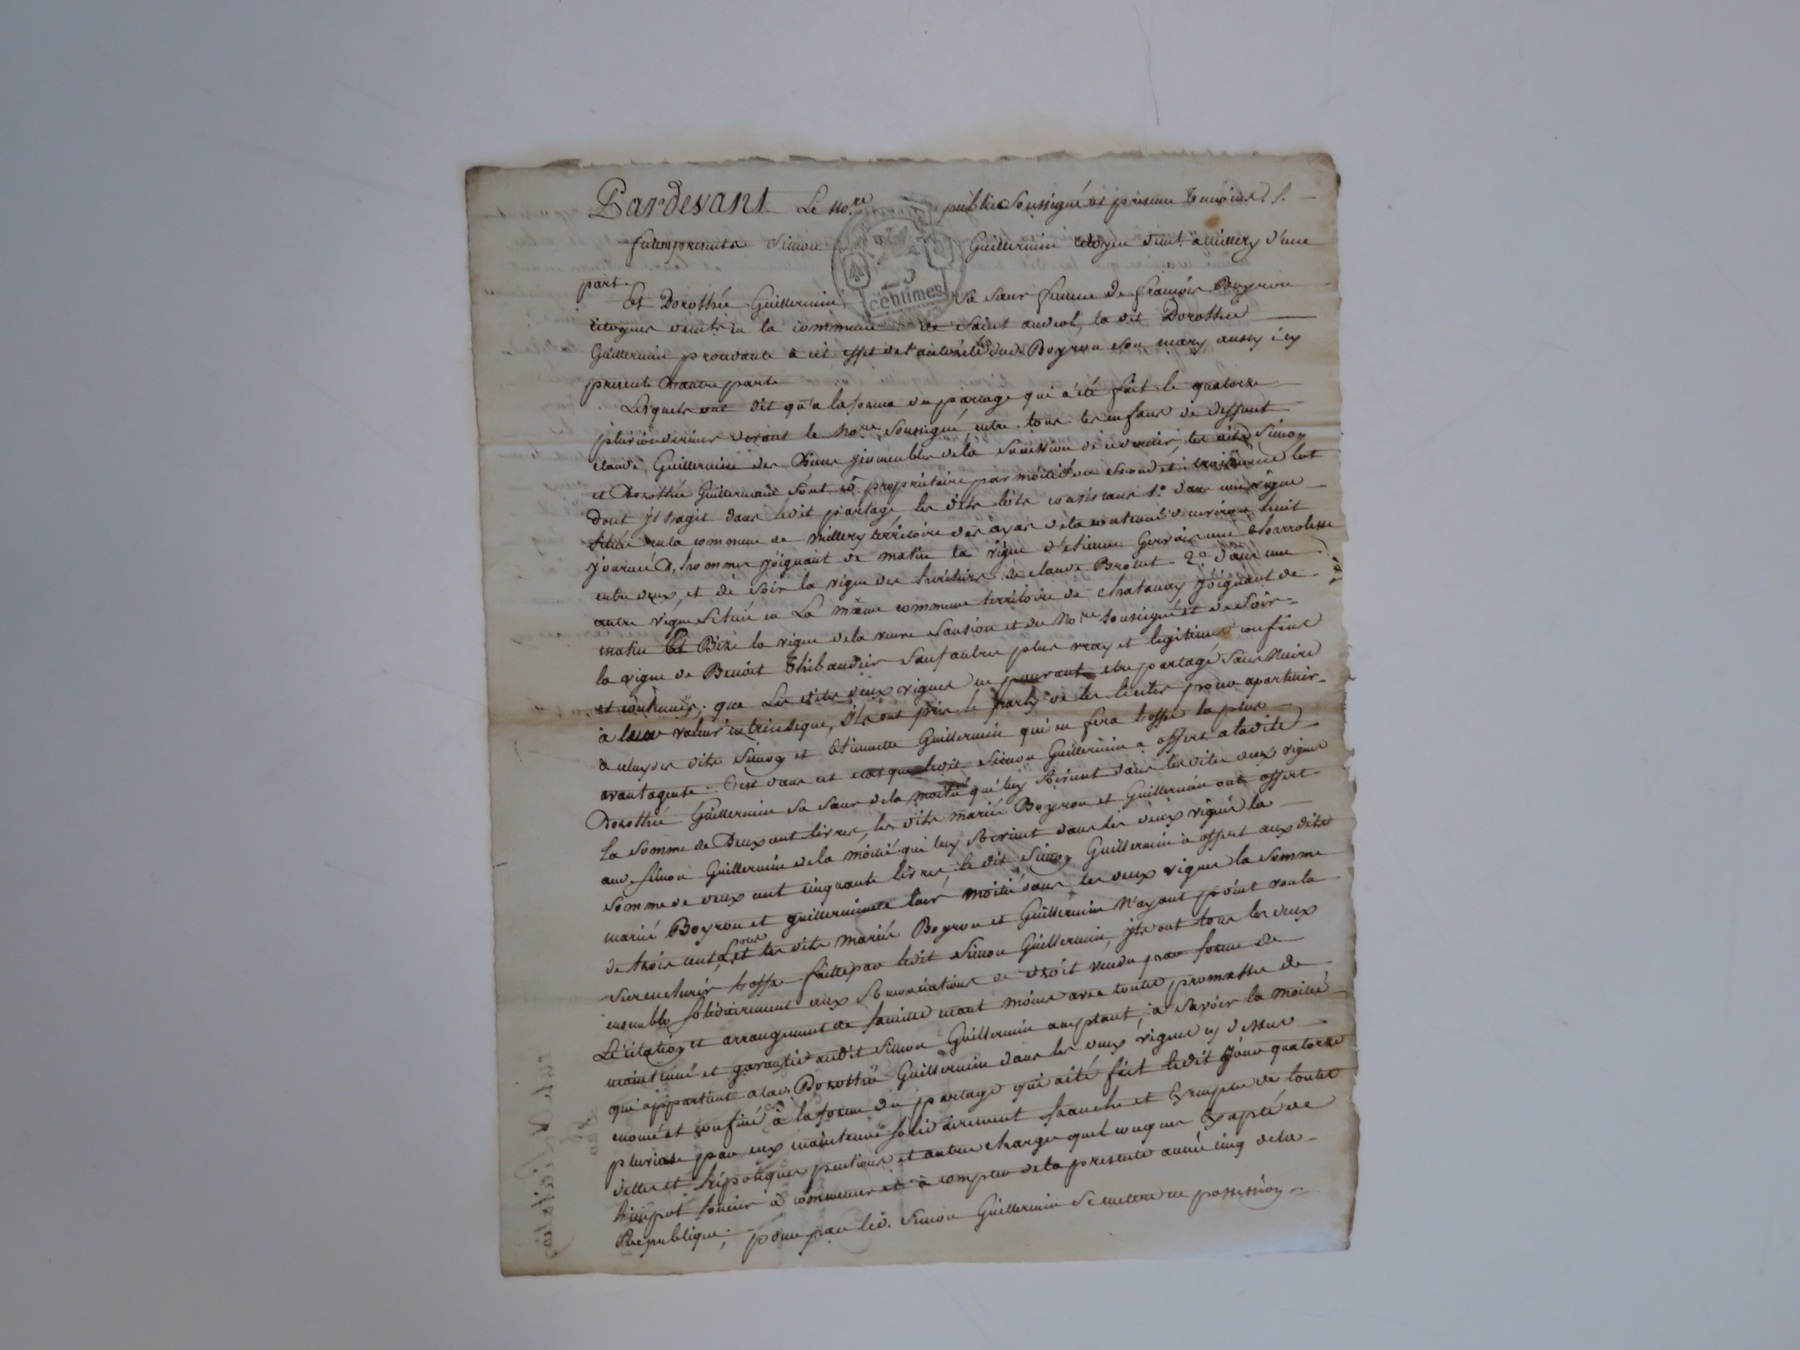 Pardevant Le no.re public Soussigné et presence temoins
furent presents Simon Guillermin citoyen demt. a millery d'une
part
Et Dorothée Guillermin sa sœur femme de françois Boyron
citoyens demts. en la commune de Saint andeol, la dit Dorothée
Guillermin procédante a cet effet de l'autorité dud. Boyron son mary aussy icy
present d'autre part
Lesquels ont dit qu'a la forme du partage qui a été fait le quatorze
pluviose dernier devant le no.re soussigné, entre tous les enfans de deffunt
claude Guillermin des biens immeubles de la succession de ce dernier, les dits Simon
et Dorothée Guillermin sont propriétaire par moitié du second et troisieme lot
dont jl sagit dans ledit partage les dits lots consistans 1.º dans une vigne
située en la commune de millery territoire des ayas de la contenue d'environ huit
journée d'homme joignant de matin la vigne d'etienne Gervais une charrolesse
entre deux, et de soir la vigne des heritiers de claude Brotet 2.º dans une
autre vigne située en la même commune territoire de chatanay joignant de
matin et Bize la vigne de la veuve Sansion et du no.re soussigné et de soir
la vigne de Benoit Thibaudier sauf autres plus vray et legitimes confins
et contenues; que les dites deux vignes ne pouvant etre partagé sans nuire
a leur valeur intrinseque, ils ont pris le party de les liciter pour apartenir
a celuy des dits Simon et Etiennette Guillermin qui en fera l'offre la plus
avantageuse. C'est dans cet etat que ledit Simon Guillermin a offert a ladite
Dorothée Guillermin sa sœur de la moitié qui luy obvient dans les dites deux vignes
la somme de deux cent livres, les dits mariés Boyron et Guillermin ont offert
aud. simon Guillermin de la moitié qui luy obvient dans les deux vigne la
somme de deux cent cinquante livres, le dit Simon Guillermin a offert aux dits
mariés Boyron et guillermin de leur moitié dans les deux vignes la somme
de trois cent livres et les dits mariés Boyron et Guillermin n'ayant point voulu
surencherir l'offre faitte par ledit Simon Guillermin, jls ont tous les deux
ensemble solidairement aux renonciations de droit vendu par forme de
Licitation et arrangement de famille avec toutes promesses de
maintenue et garantie audit Simon Guillermin acceptant, a savoir la moitié
qui appartient a lad. Dorothée Guillermin dans les deux vignes cy dessus
enoncé et confiné a la forme du partage qui a été fait ledit jour quatorze
pluviose par eux maintenue solidairement franche et exempte de toutes
dettes et hipoteques pentions et autres charges quelconques excepté de
l'impot foncier a commencer et a compter de la presente année cinq de la
République; pour par led. Simon Guillermin se mettre en possession
centimes